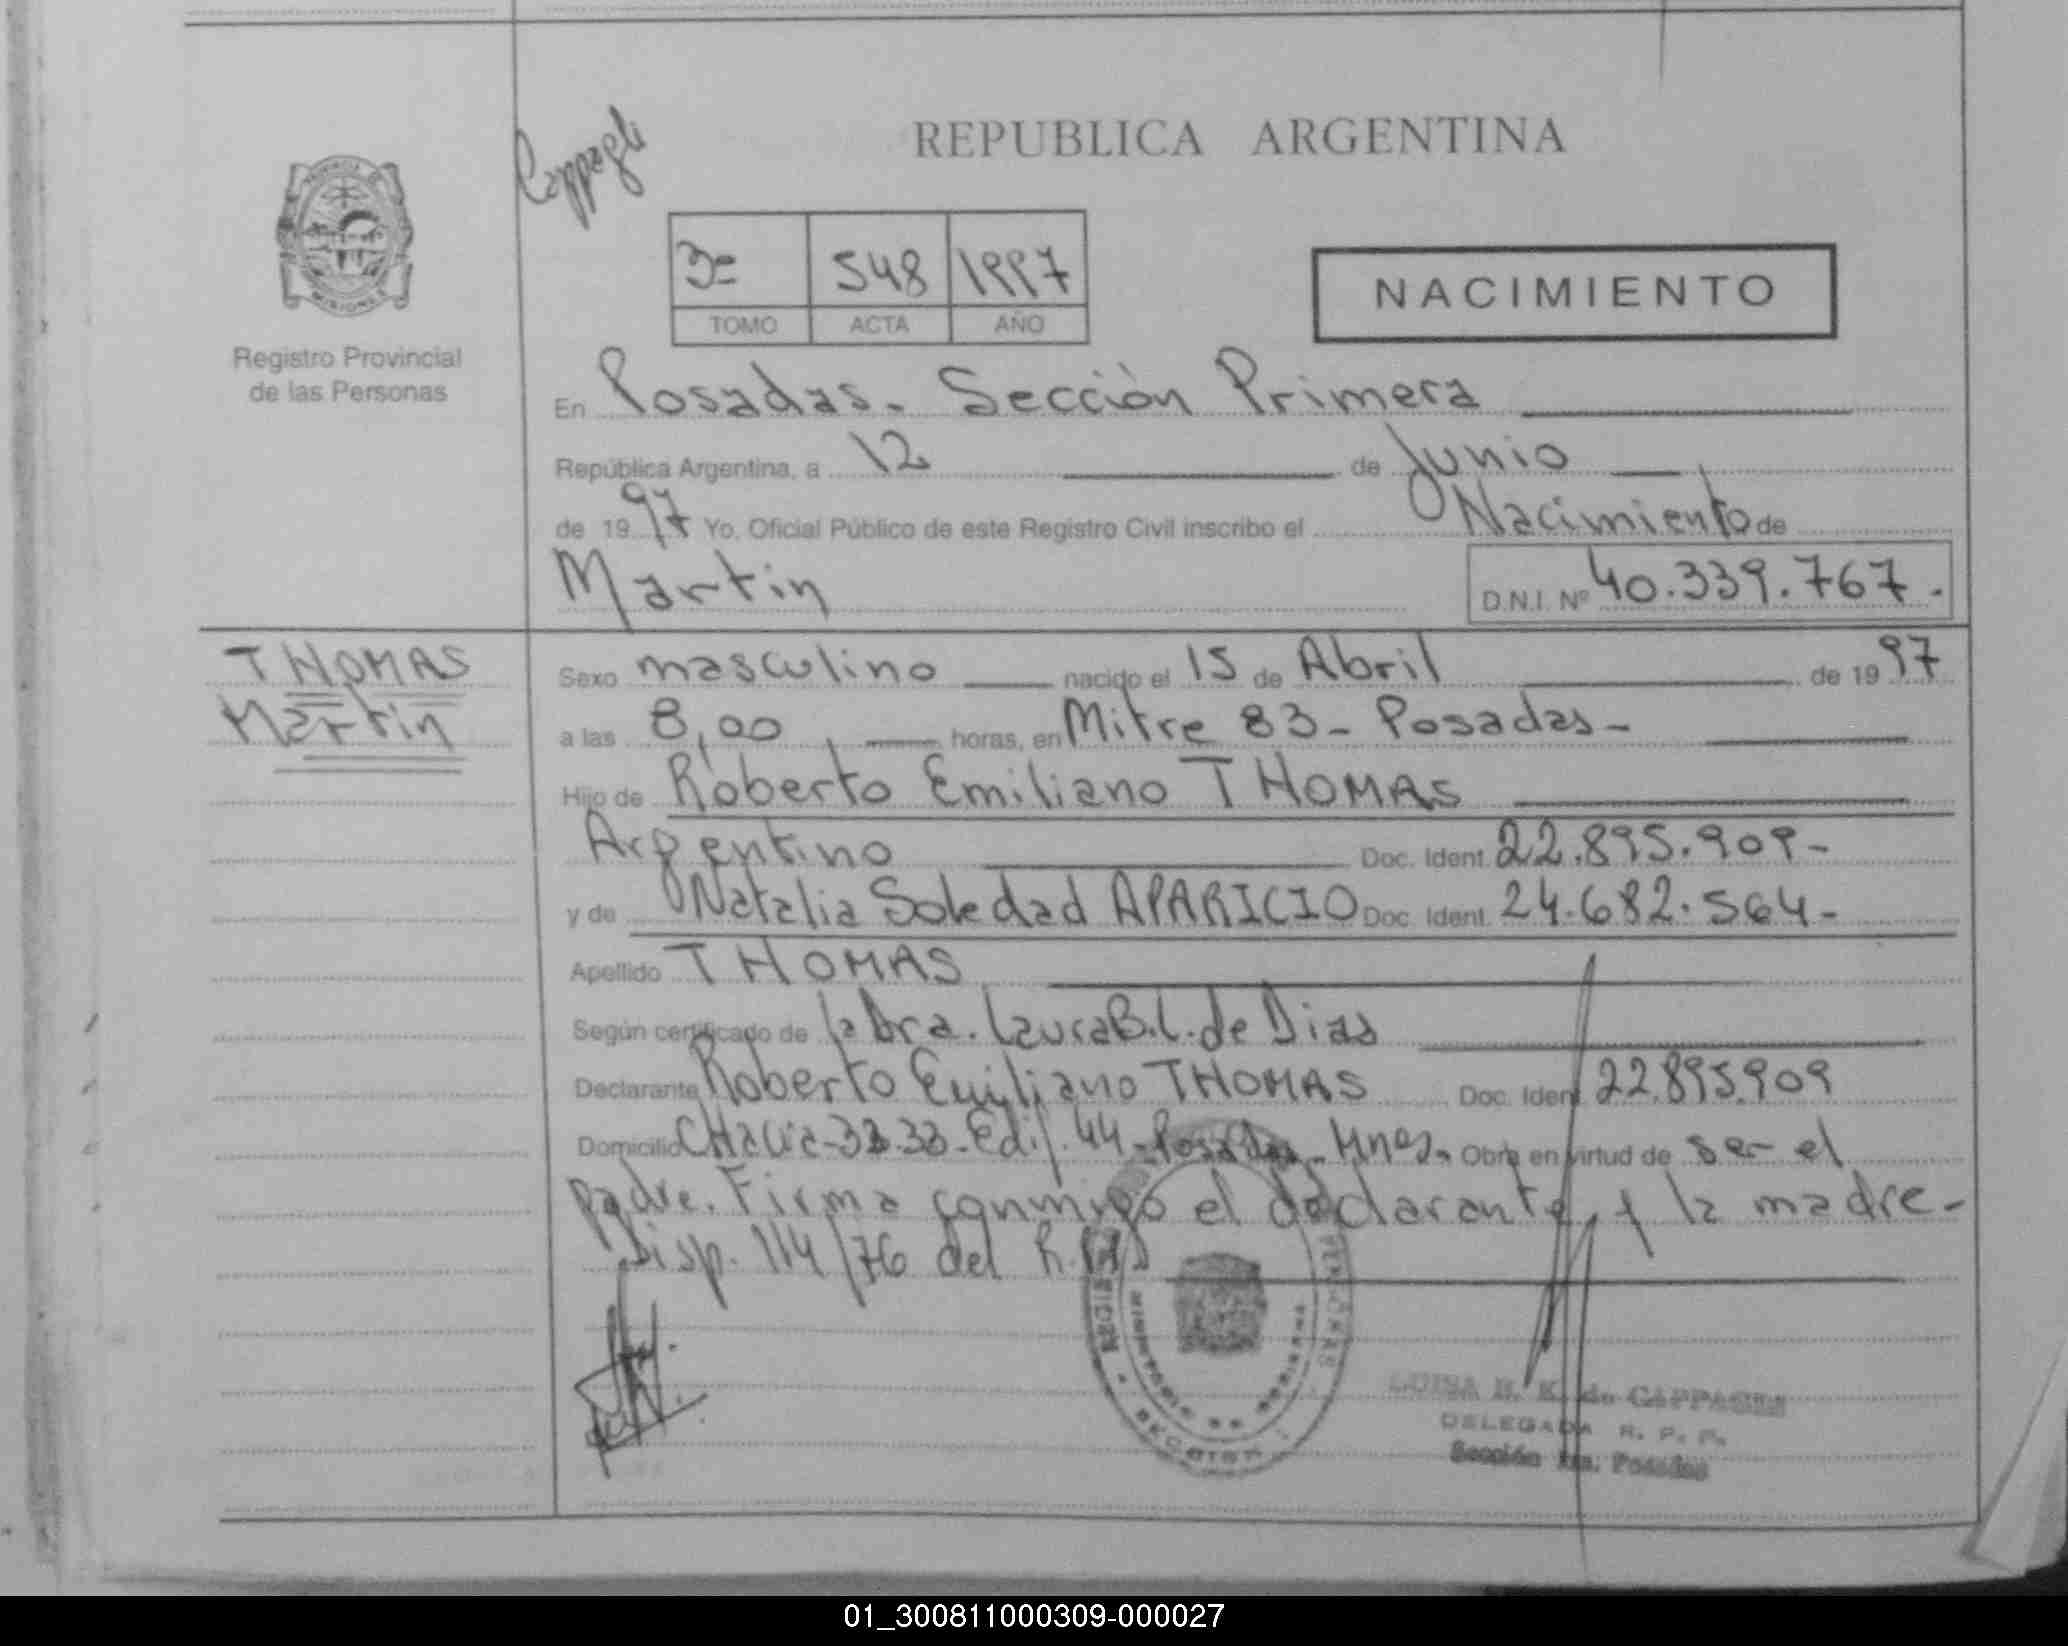 REPUBLICA ARGENTINA
Cappagli
PROVINCIA
MISIONES
Registro Provincial
de las Personas
3º 548 1997
TOMO ACTA AÑO
NACIMIENTO
En Posadas - Sección Primera
República Argentina, a 12 de Junio
de 1997 Yo, Oficial Público de este Registro Civil inscribo el Nacimiento de
Martin D.N.I. Nº 40.339.767.
THOMAS
Martin
Sexo masculino nacido el 15 de Abril de 1997
a las 8,00 horas, en Mitre 83 - Posadas -
Hijo de Roberto Emiliano THOMAS
Argentino Doc. Ident. 22.895.909-
y de Natalia Soledad APARICIO Doc. Ident. 24.682.564-
Apellido THOMAS
Según certificado de la Dra. Laura B.L. de Dias
Declarante Roberto Emiliano THOMAS Doc. Ident. 22.895.909
Domicilio Edif. 44 - Posadas - Mnes. Obra en virtud de ser el
padre. Firma conmigo el declarante y la madre -
Disp. 114/76 del
PERSONAS
MINISTERIO DE GOBIERNO
SECCION
LUISA H. K. de CAPPAGLI
DELEGADA R. P. P.
Sección 1ra. Posadas
01_300811000309-000027